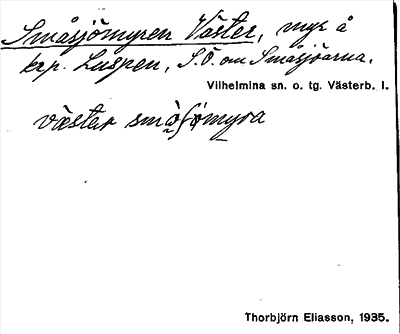 Småsjömyren Väster, myr å
krp. Luspen, S.Ö. om Småsjöarna.
Vilhelmina sn. o. tg. Västerb. l.
västar
Thorbjörn Eliasson, 1935.